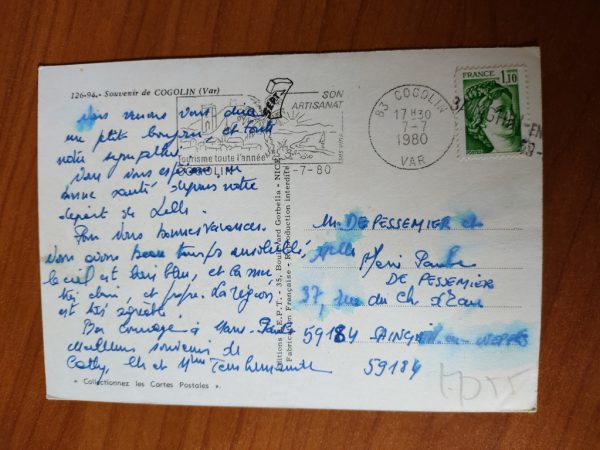 126-94.- Souvenir de COGOLIN (Var)
Nous venons vous dire
une ptite bonjour et toute
notre sympathie
Vous
bonne santé depuis notre
départ de Lille.
Pour Vous bonnes vacances.
Nous avons beau temps ensoleillé,
le ciel est bien bleu, et la mer
très claire, et propre. La région
est très agréable.
Bon courage à Marie-Paule
meilleurs souvenir de
Cathy, et Mme
« Collectionnez les Cartes Postales ».
SON
ARTISANAT
Tourisme toute l'année
COGOLIN
-7-80
83 COGOLIN
17 H30
7-7
1980
VAR
FRANCE
1,10
Editions S.E.P.T. - 35, Boulevard Gorbella - NICE
Fabrication Française - Reproduction interdite
M. DE PESSEMIER et
Melle Marie Paule
DE PESSEMIER
37, rue du Ch d'Eau
59184 SAINGHIN en WEPPES
59184